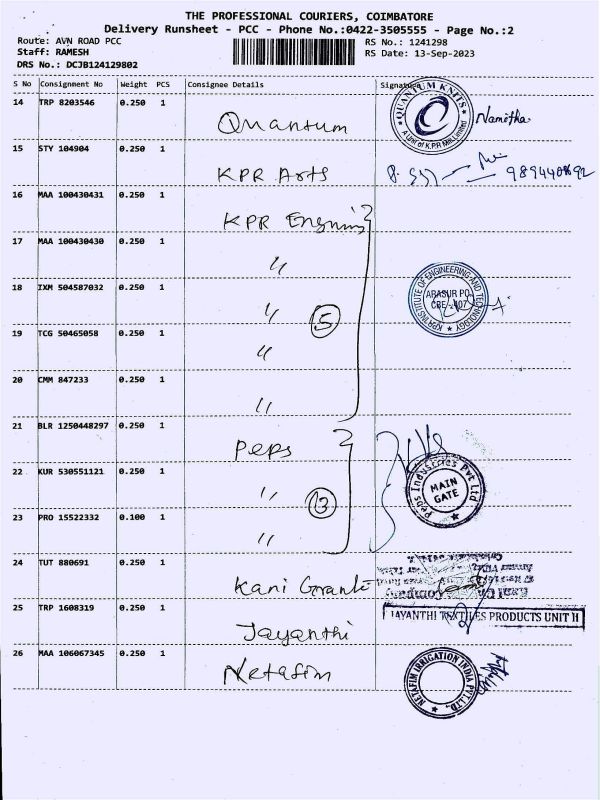 THE PROFESSIONAL COURIERS, COIMBATORE
Delivery Runsheet - PCC - Phone No.:0422-3505555 - Page No.:2
Route: AVN ROAD PCC
RS No.: 1241298
Staff: RAMESH
RS Date: 13-Sep-2023
DRS No.: DCJB124129802
S No Consignment No Weight PCS Consignee Details Signature
14 TRP 8203546 0.250 1
Quantum
QUANTUM KNITS
A Unit of K.P.R Mill Limited
Namitha
15 STY 104904 0.250 1
KPR Arts
16 MAA 100430431 0.250 1
KPR
17 MAA 100430430 0.250 1
"
18 IXM 504587032 0.250 1
" 5
KPR INSTITUTE OF ENGINEERING AND TECHNOLOGY
ARASUR PO
19 TCG 50465058 0.250 1
"
20 CMM 847233 0.250 1
"
21 BLR 1250448297 0.250 1
Peps
22 KUR 530551121 0.250 1
" 3
Peps Industries Pvt Ltd
MAIN
GATE
23 PRO 15522332 0.100 1
"
24 TUT 880691 0.250 1
Kani
25 TRP 1608319 0.250 1
Jayanthi
JAYANTHI TEXTILES PRODUCTS UNIT II
26 MAA 106067345 0.250 1
Netafim
NETAFIM IRRIGATION INDIA PVT.LTD.